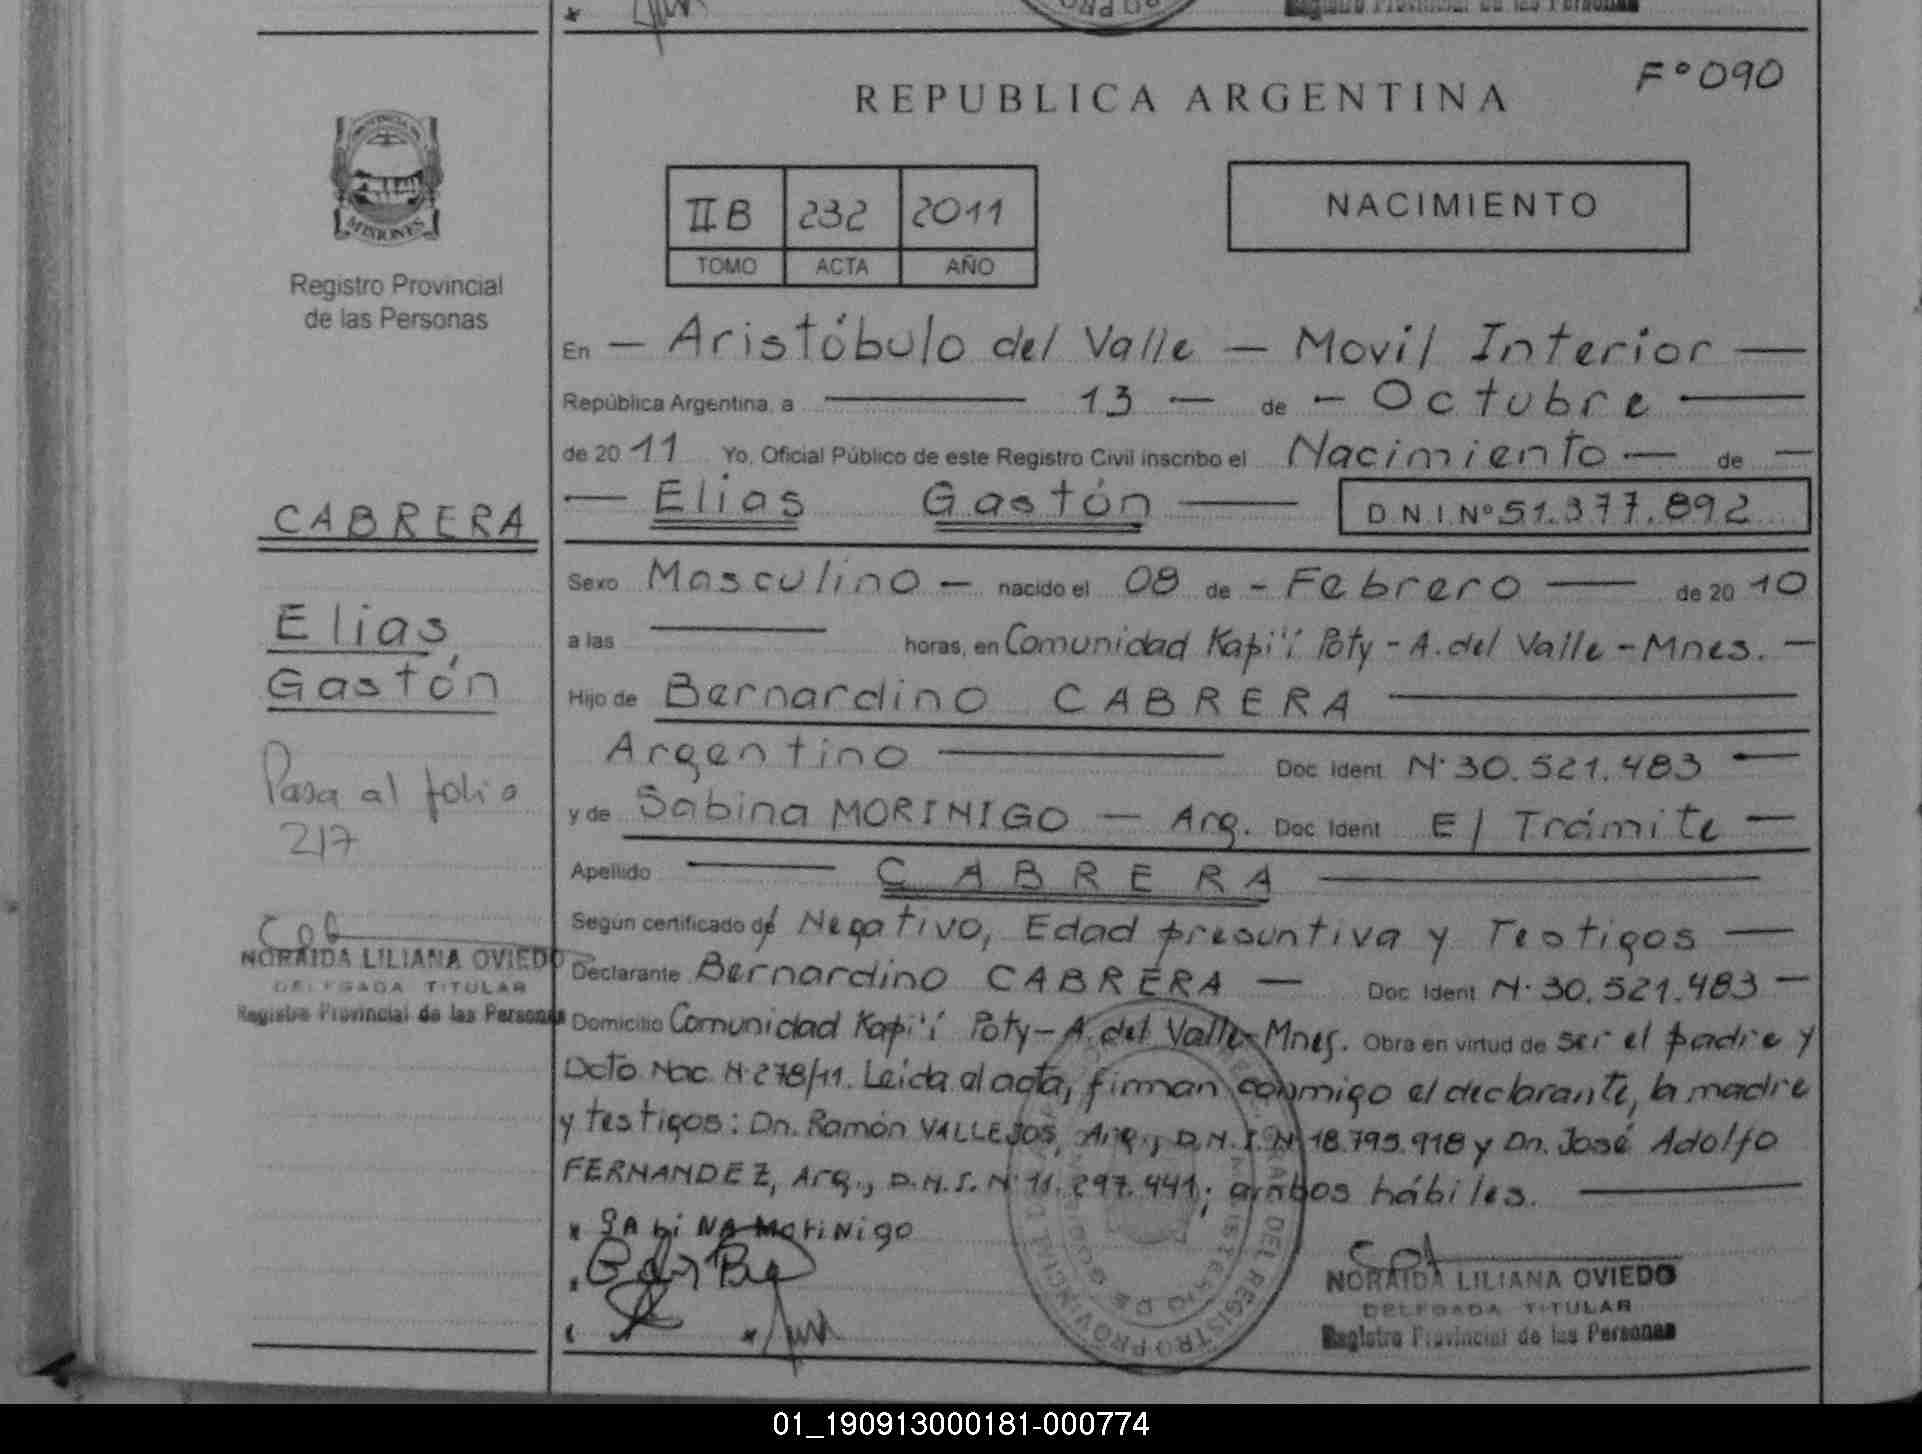 Registro Provincial de las Personas
F° 090
REPUBLICA ARGENTINA
PROVINCIA DE
MISIONES
Registro Provincial
de las Personas
II B 232 2011
TOMO ACTA AÑO
NACIMIENTO
En — Aristóbulo del Valle — Movil Interior —
República Argentina, a — 13 — de — Octubre —
de 20 11 Yo, Oficial Público de este Registro Civil inscribo el Nacimiento — de —
— Elias Gastón — D.N.I. N° 51.377.892
CABRERA
Elias
Gastón
Pasa al folio
217
NORAIDA LILIANA OVIEDO
DELEGADA TITULAR
Registro Provincial de las Personas
Sexo Masculino — nacido el 08 de - Febrero — de 20 10
a las — horas, en Comunidad Kapi'i Poty - A. del Valle - Mnes. —
Hijo de Bernardino CABRERA —
Argentino — Doc. Ident. N° 30.521.483 —
y de Sabina MORINIGO — Arg. Doc. Ident. E/ Trámite —
Apellido — CABRERA —
Según certificado de Negativo, Edad presuntiva y Testigos —
Declarante Bernardino CABRERA — Doc. Ident. N° 30.521.483 —
Domicilio Comunidad Kapi'i Poty - A. del Valle - Mnes. Obra en virtud de ser el padre y
Dcto Nac. N° 278/11. Leida el acta, firman conmigo el declarante, la madre
y testigos: Dn. Ramón VALLEJOS, Arg., D.N.I. N° 18.795.918 y Dn. José Adolfo
FERNANDEZ, Arg., D.N.I. N° 11.297.441; ambos hábiles. —
x SAbiNA MoriNigo
NORAIDA LILIANA OVIEDO
DELEGADA TITULAR
Registro Provincial de las Personas
01_190913000181-000774